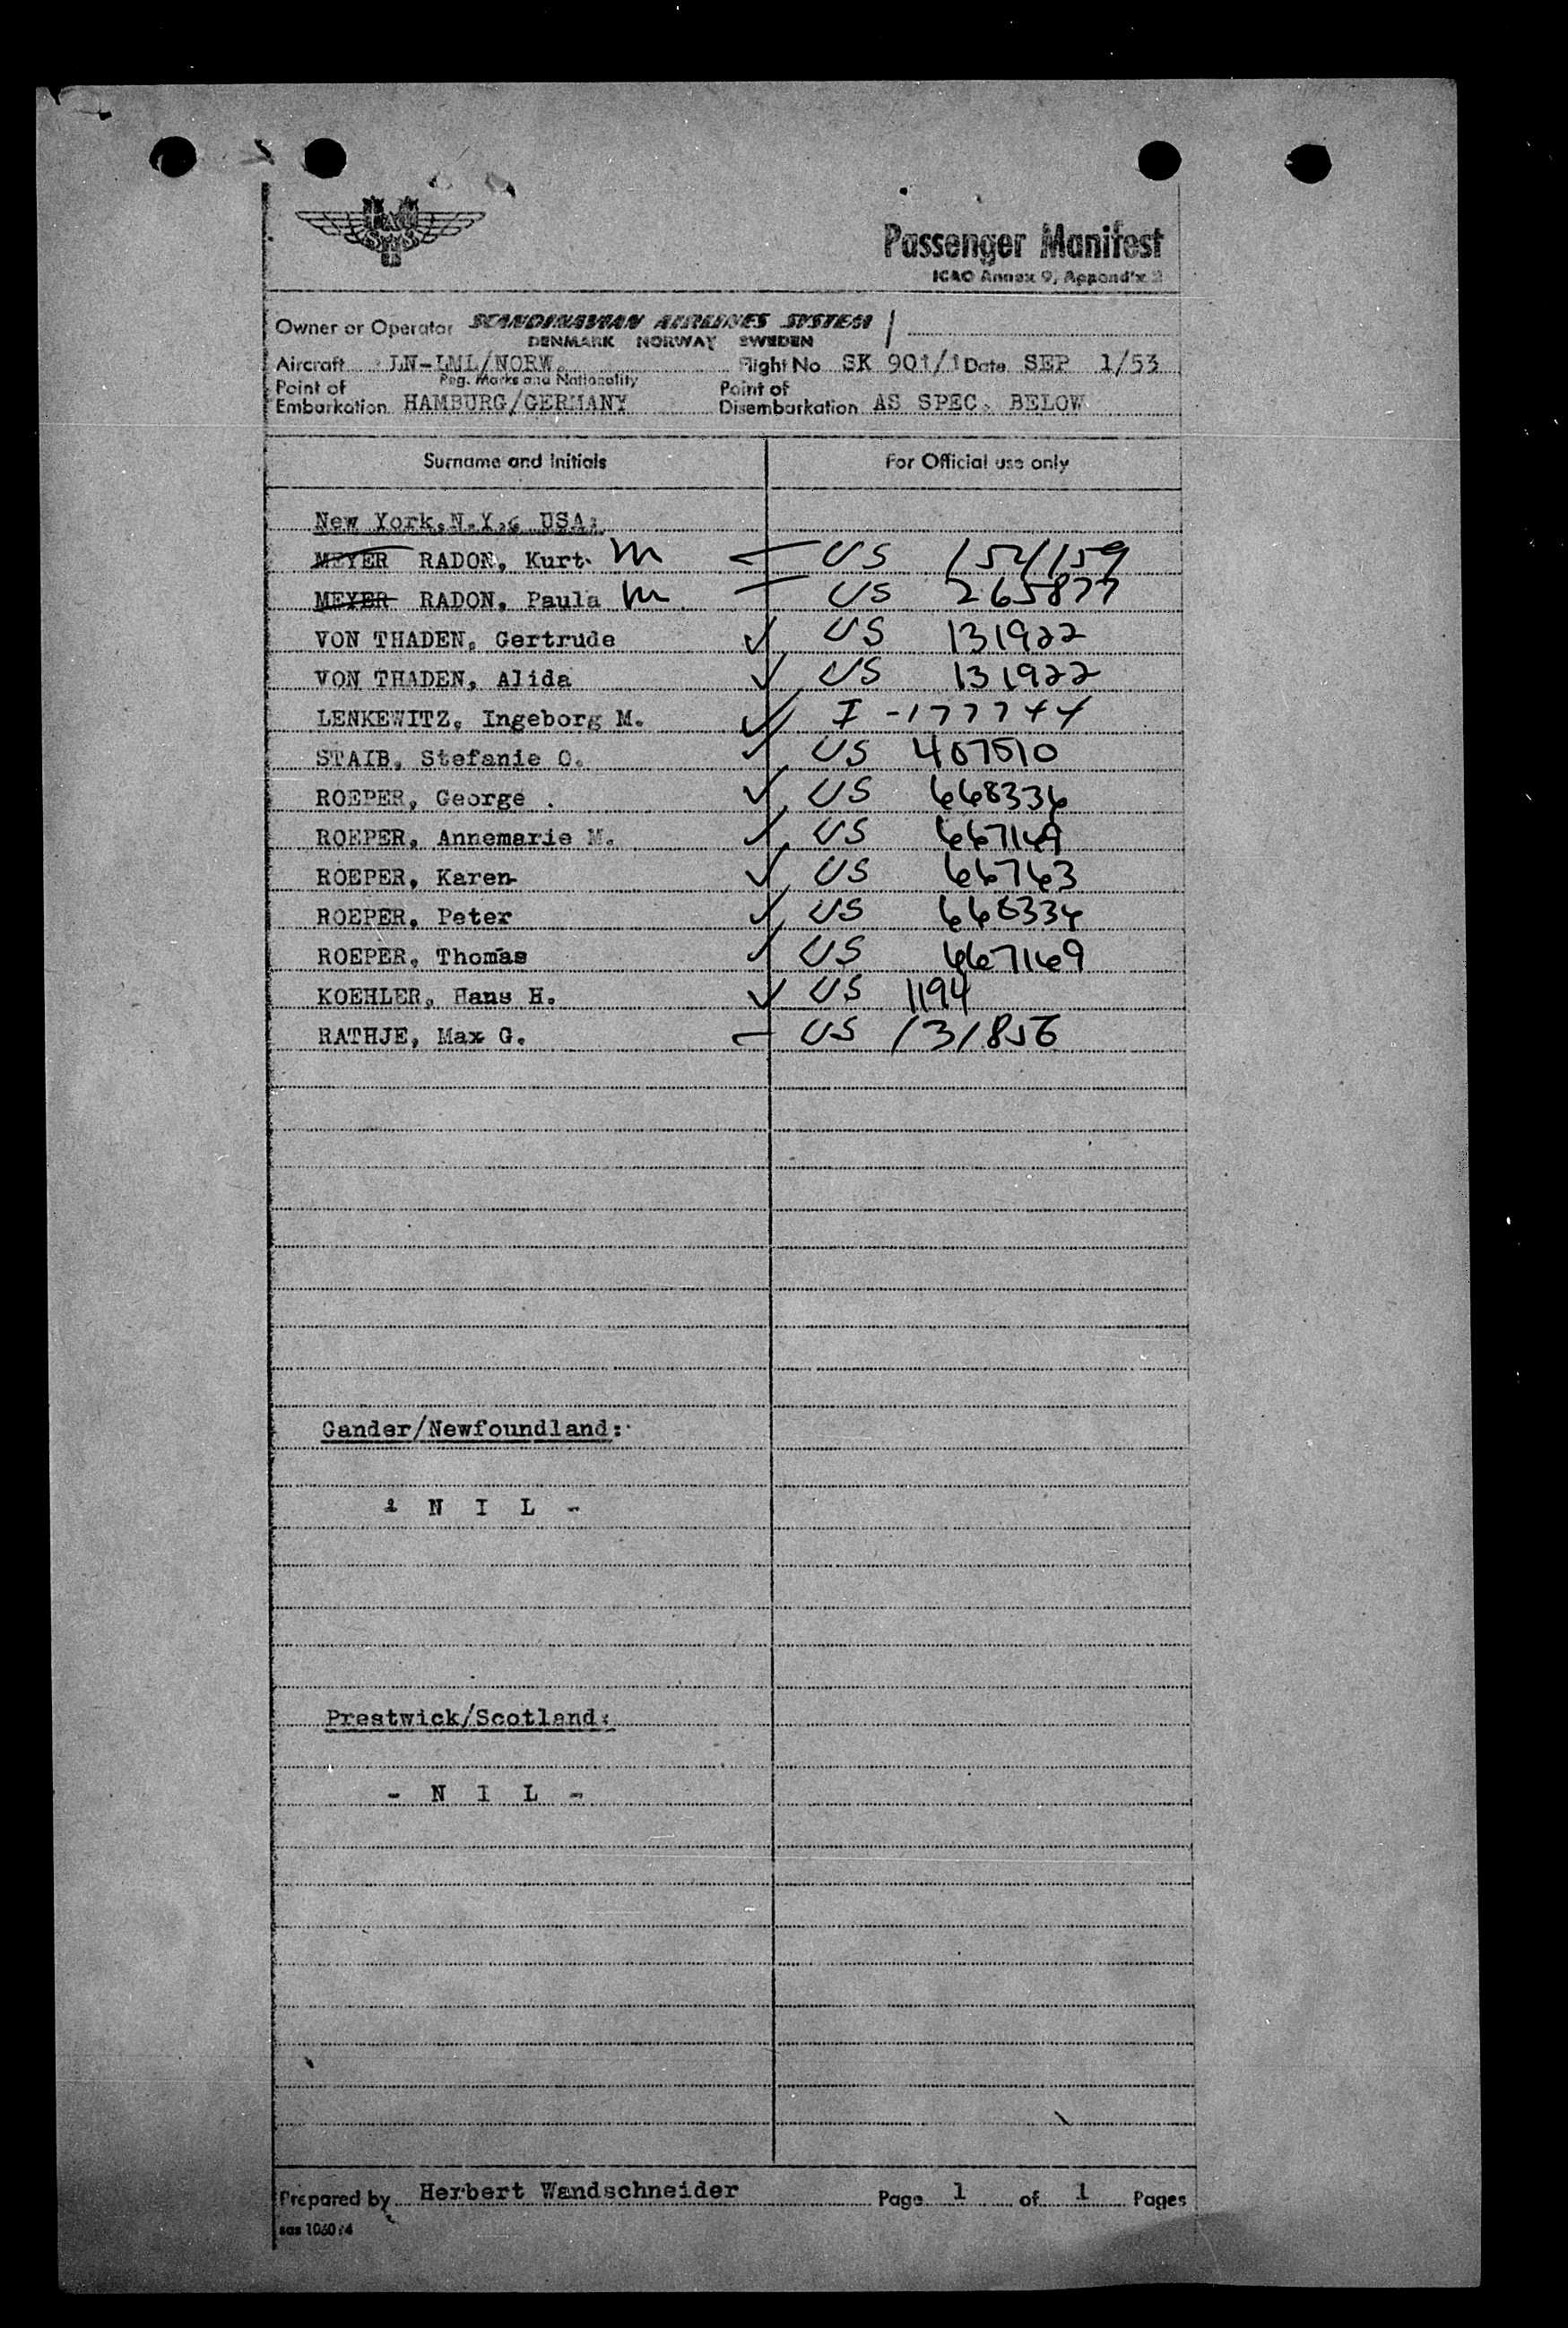 SAS
Passenger Manifest
ICAO Annex 9, Appendix 2
Owner or Operator SCANDINAVIAN AIRLINES SYSTEM /
DENMARK NORWAY SWEDEN
Aircraft LN-LML/NORW. Flight No SK 901/1 Date SEP 1/53
Reg. Marks and Nationality
Point of Embarkation HAMBURG/GERMANY Point of Disembarkation AS SPEC. BELOW
Surname and Initials For Official use only
New York, N.Y., USA:
MEYER RADON, Kurt M US 154159
MEYER RADON, Paula M US 265877
VON THADEN, Gertrude ✓ US 131922
VON THADEN, Alida ✓ US 131922
LENKEWITZ, Ingeborg M. ✓ I -177744
STAIB, Stefanie O. ✓ US 407510
ROEPER, George . ✓ US 668336
ROEPER, Annemarie M. ✓ US 667169
ROEPER, Karen ✓ US 66763
ROEPER, Peter ✓ US 668336
ROEPER, Thomas ✓ US 667169
KOEHLER, Hans H. ✓ US 1194
RATHJE, Max G. US 131856
Gander/Newfoundland:
- N I L -
Prestwick/Scotland:
- N I L -
Prepared by Herbert Wandschneider Page 1 of 1 Pages
sas 1060:4